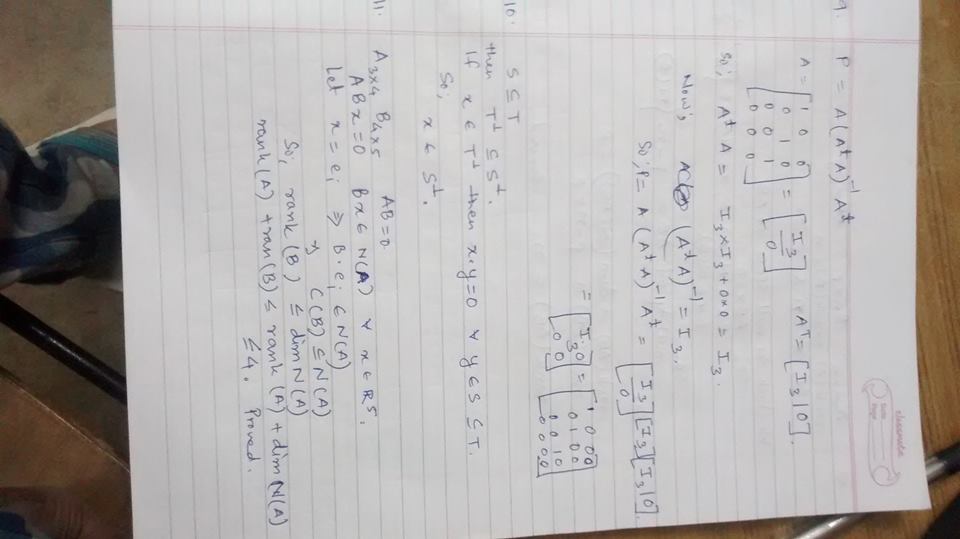 classmate
Date
Page
9. P = A (AᵗA)⁻¹ Aᵗ
A = [1 0 0; 0 1 0; 0 0 1; 0 0 0] = [I₃; 0] Aᵀ = [I₃|0].
So; AᵗA = I₃×I₃+0×0 = I₃.
Now; (AᵗA)⁻¹ = I₃.
So; P = A (AᵗA)⁻¹ Aᵗ = [I₃; 0] [I₃] [I₃|0].
= [I₃ 0; 0 0] = [1 0 0 0; 0 1 0 0; 0 0 1 0; 0 0 0 0]
10. S ⊆ T
then T⊥ ⊆ S⊥.
If x ∈ T⊥ then x.y=0 ∀ y ∈ S ⊆ T.
So, x ∈ S⊥.
11. A₃ₓ₄ B₄ₓ₅ AB=0.
ABx=0 Bx ∈ N(A) ∀ x ∈ R⁵.
Let x = eᵢ ⇒ B.eᵢ ∈ N(A)
⇒ C(B) ⊆ N(A)
So, rank(B) ≤ dim N(A)
rank(A) + ran(B) ≤ rank(A) + dim N(A)
≤ 4. Proved.